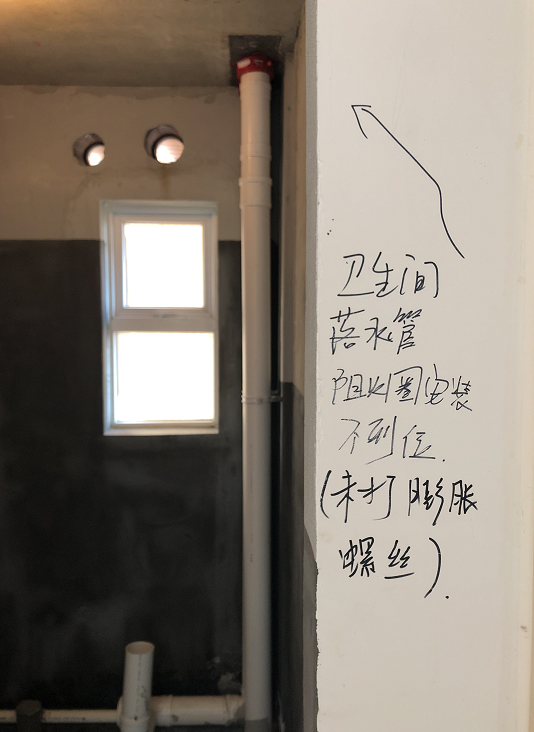 卫生间
落水管
阻火圈安装
不到位.
(未打膨胀
螺丝).